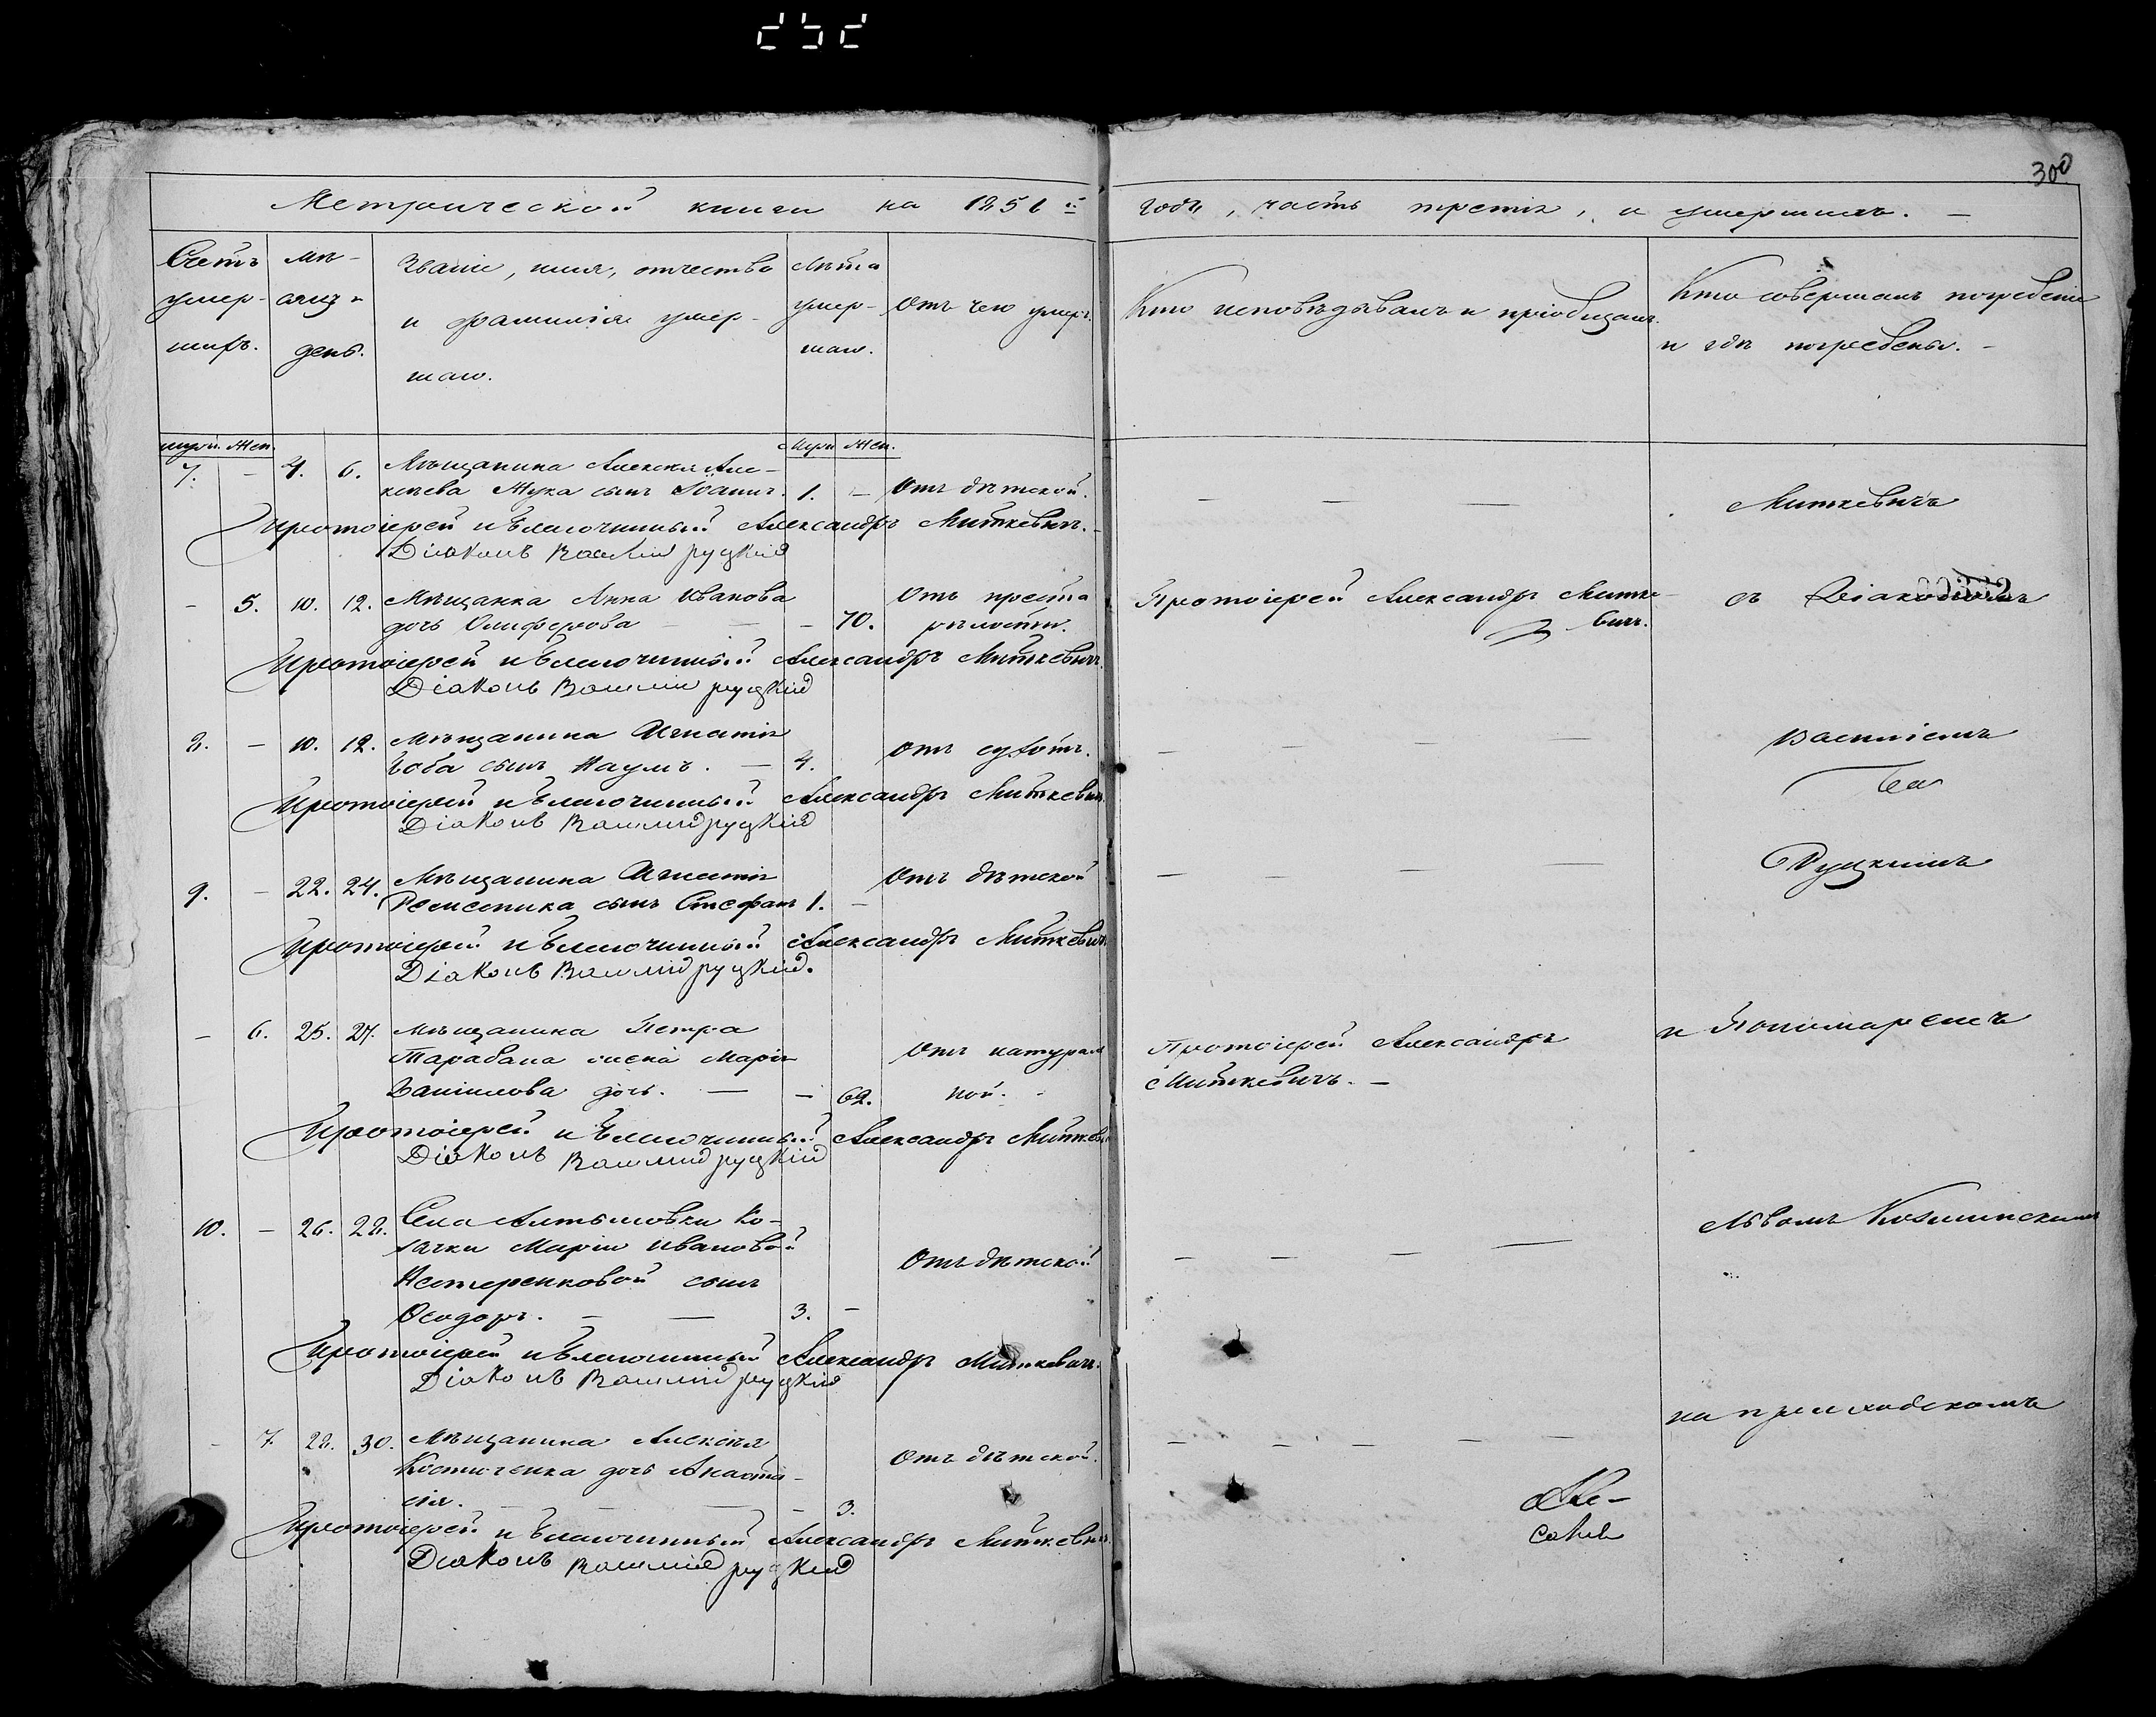 300
Метрической книги на 1851 й годъ, часть третія, о умершихъ. —
Счетъ умер- шихъ.
Мѣ- сяцъ и день.
Званіе, имя, отчество и фамилія умер- шаго.
Лѣта умер- шаго.
Отъ чего умеръ.
Кто исповѣдывалъ и пріобщалъ.
Кто совершалъ погребеніе и гдѣ погребены. —
Муж. Жен.
Муж. Жен.
7. — 4. 6. Мѣщанина Алексѣя Але-
ксѣева Жука сынъ Іоаннъ. 1. — Отъ дѣтской. — — — Миткевичъ
Протоіерей и Благочинный Александръ Миткевичъ.
Діаконъ Василій Руцкій
— 5. 10. 12. Мѣщанка Анна Иванова
дочь Олиферова — — — 70. Отъ преста
рѣлости.
Протоіерей Александръ Митке-
вичъ.
съ Діакономъ
00332
Протоіерей и Благочинный Александръ Миткевичъ.
Діаконъ Василій Руцкій
8. — 10. 12. Мѣщанина Игнатія
сынъ Наумъ. — 4. Отъ сухотъ. — — — — Василіемъ
Протоіерей и Благочинный Александръ Миткевичъ.
Діаконъ Василій Руцкій
9. — 22. 24. Мѣщанина Игнатія
сынъ Стефанъ 1. — Отъ дѣтской — — — — Руцкимъ
Протоіерей и Благочинный Александръ Миткевичъ
Діаконъ Василій Руцкій.
— 6. 25. 27. Мѣщанина Петра
Тарабана жена Марія
Данилова дочь. — — 62. Отъ натураль
ной. -
Протоіерей Александръ
Миткевичъ. —
и Пономаремъ
Протоіерей и Благочинный Александръ Миткевичъ
Діаконъ Василій Руцкій
10. — 26. 28. Села Алтыновки Ко-
зачки Маріи Ивановой
Нестеренковой сынъ
Ѳеодоръ. — — 3. — Отъ дѣтской — — — — Львомъ
Протоіерей и Благочинный Александръ Миткевичъ.
Діаконъ Василій Руцкій
— 7. 28. 30. Мѣщанина Алексѣя
Костюченка дочь Анаста-
сія. — — — — 3. Отъ дѣтской. — — — — — на приходскомъ
Протоіерей и Благочинный Александръ Миткевичъ.
Діаконъ Василій Руцкій